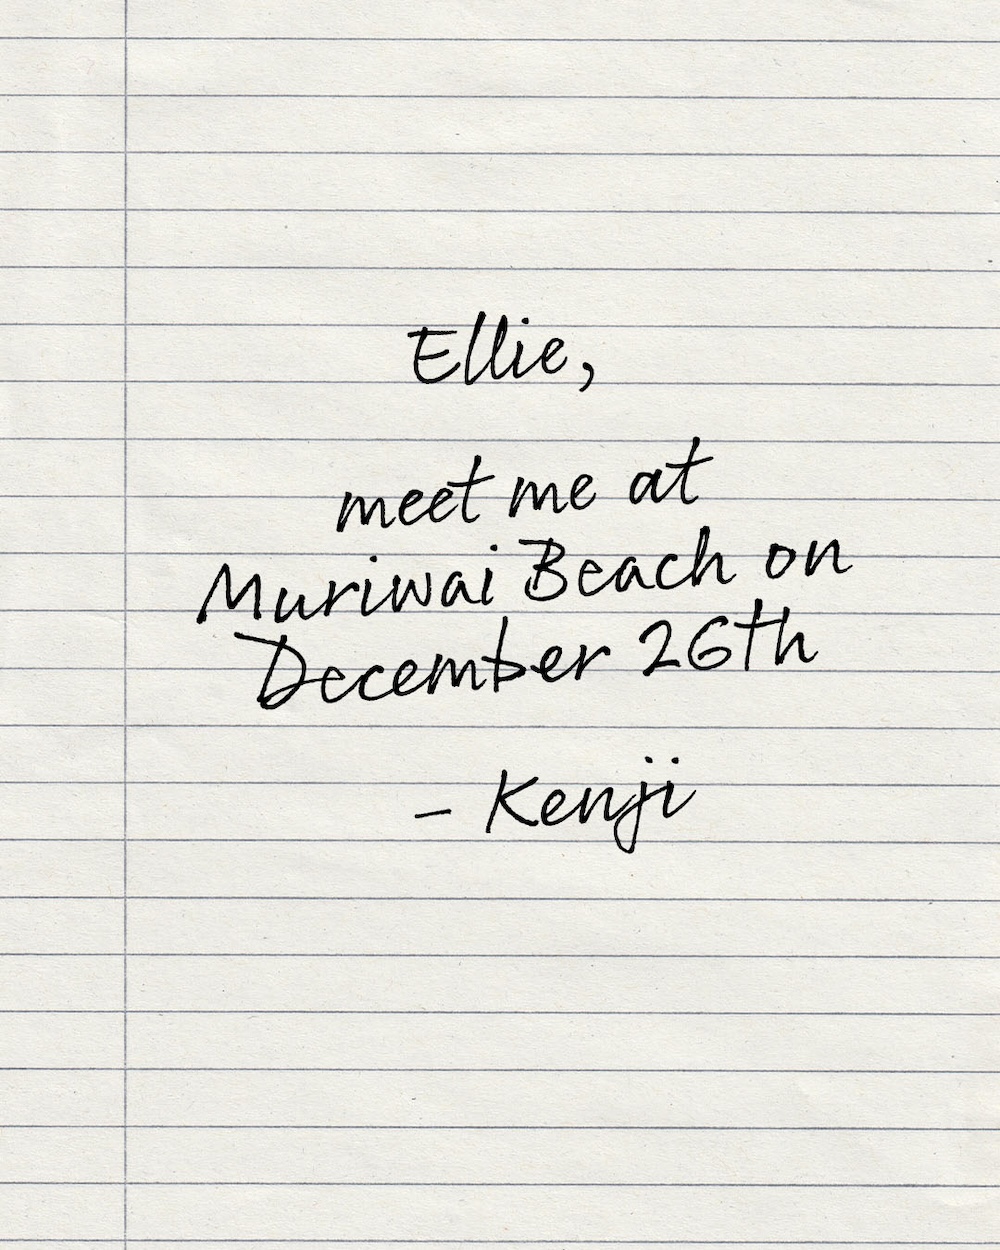 Ellie,
meet me at
Muriwai Beach on
December 26th
- Kenji